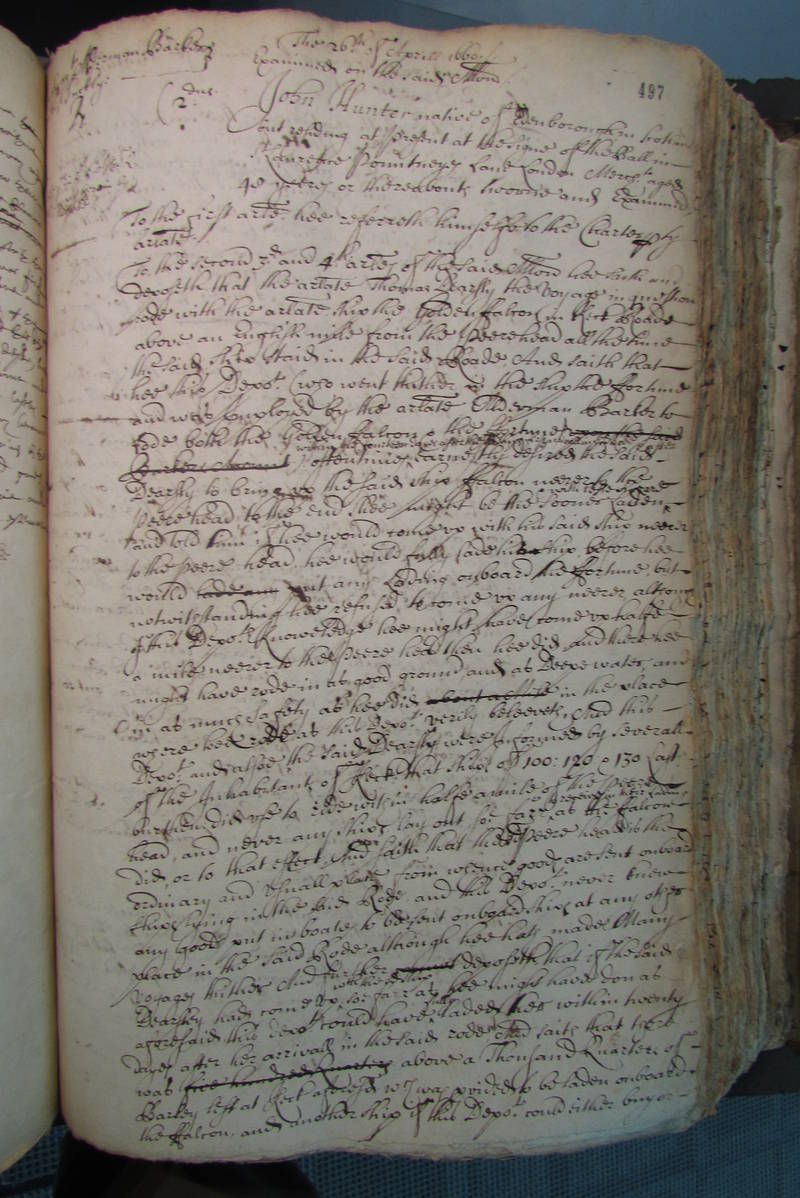 The 26th of Aprill 1660.
Examined on the said Allon
497
Alderman Barker
2
dus.
John Hunter native of Edenborough in Scotland
but residing at present at the signe of the Ball in
Laurence Pountneys Lane London Mercht. aged
40 yeeres or thereabouts sworne and Examined
To the first arle. hee referreth himselfe to the Charter pty
arlate.
To the second 3d. and 4th arles of the said Allon hee saith and
deposeth that the arlate Thomas Dearsly the voyage in question
rode with the arlate ship the Golden Falcon in Kirke Roade
above an English mile from the Peere head all the time
the said ship staid in the said Roade And saith that
hee this Depot. (who went thither in the ship the Fortune
and was imployed by the arlate Alderman Barker to
lode both the Golden Falcon & the Fortune
often times earnestly desired the said
Dearsly to bring up the said ship Falcon neerer to the
Peere head to the end shee might be the sooner laden
and told him if hee would come up with his said ship neerer
to the peere head, hee would fully lade his ship before hee
would put any Lading onboard the Fortune but
notwithstanding hee refused to come up any neerer although
of this Depots. knowledge hee might have come up halfe
a mile neerer to the Peere head then hee did and there hee
might have rode in as good ground and as deepe water, and
in as much safety as hee did in the place
where hee rode as this Depot. verily beleeveth, And this
Depot. and alsoe the said Dearsly were informed by severall
of the Inhabitants of Kirke that ships of 100: 120 & 130 last
burthen did use to ride within halfe a mile of the Peere
head, and never any ships lay out soe farr as the Falcon
did, or to that effect, And saith that the Peere head is the
ordinary and usuall place from whence goods are sent onboard
ships lying in the said Rode, and this Depot. never knew
any goods put in boates to be sent onboard ships at any other
place in the said Rode although hee hath made Many
voyages thither And further deposeth that if the said
Dearsley had come up soe farr as hee might have don as
aforesaid this depot. could have laden her within twenty
dayes after her arrivall in the said rode And saith that there
was above a Thousand Quarters of
Barley left at Kirke aforesd. wch. was provided to be laden onboard
the Falcon, and another ship if this Depot. could either buy or